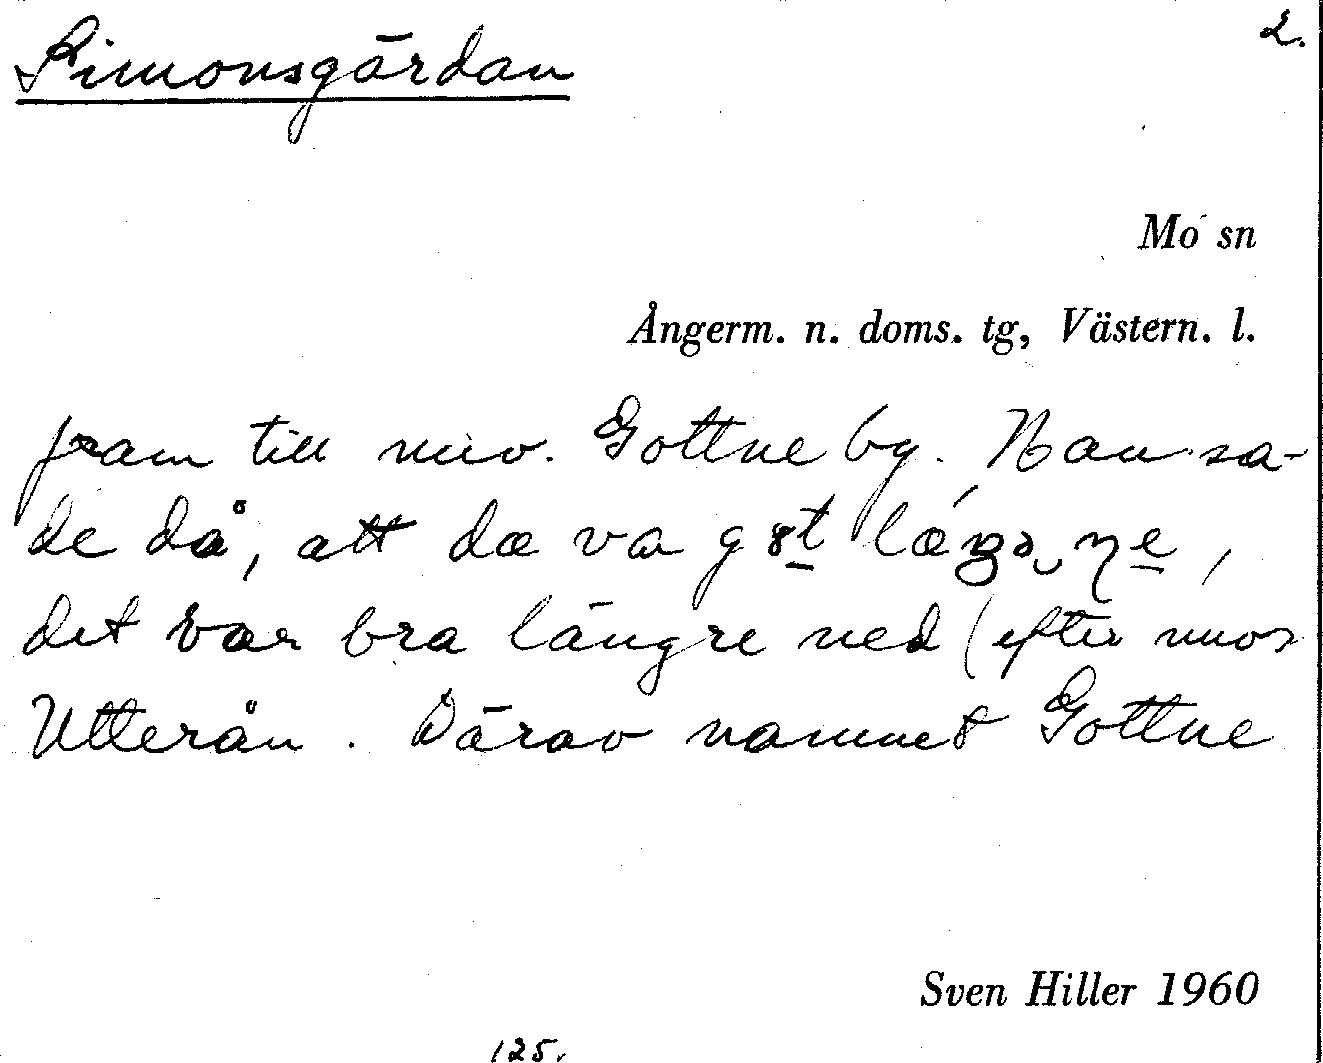 Simonsgårdan
2.
Mo sn
Ångerm. n. doms. tg, Västern. l.
fram till nuv. Gottne by. Han sa-
de då, att dæ va
det var bra längre ned (efter nuv
Utterån. Därav namnet Gottne
Sven Hiller 1960
125.